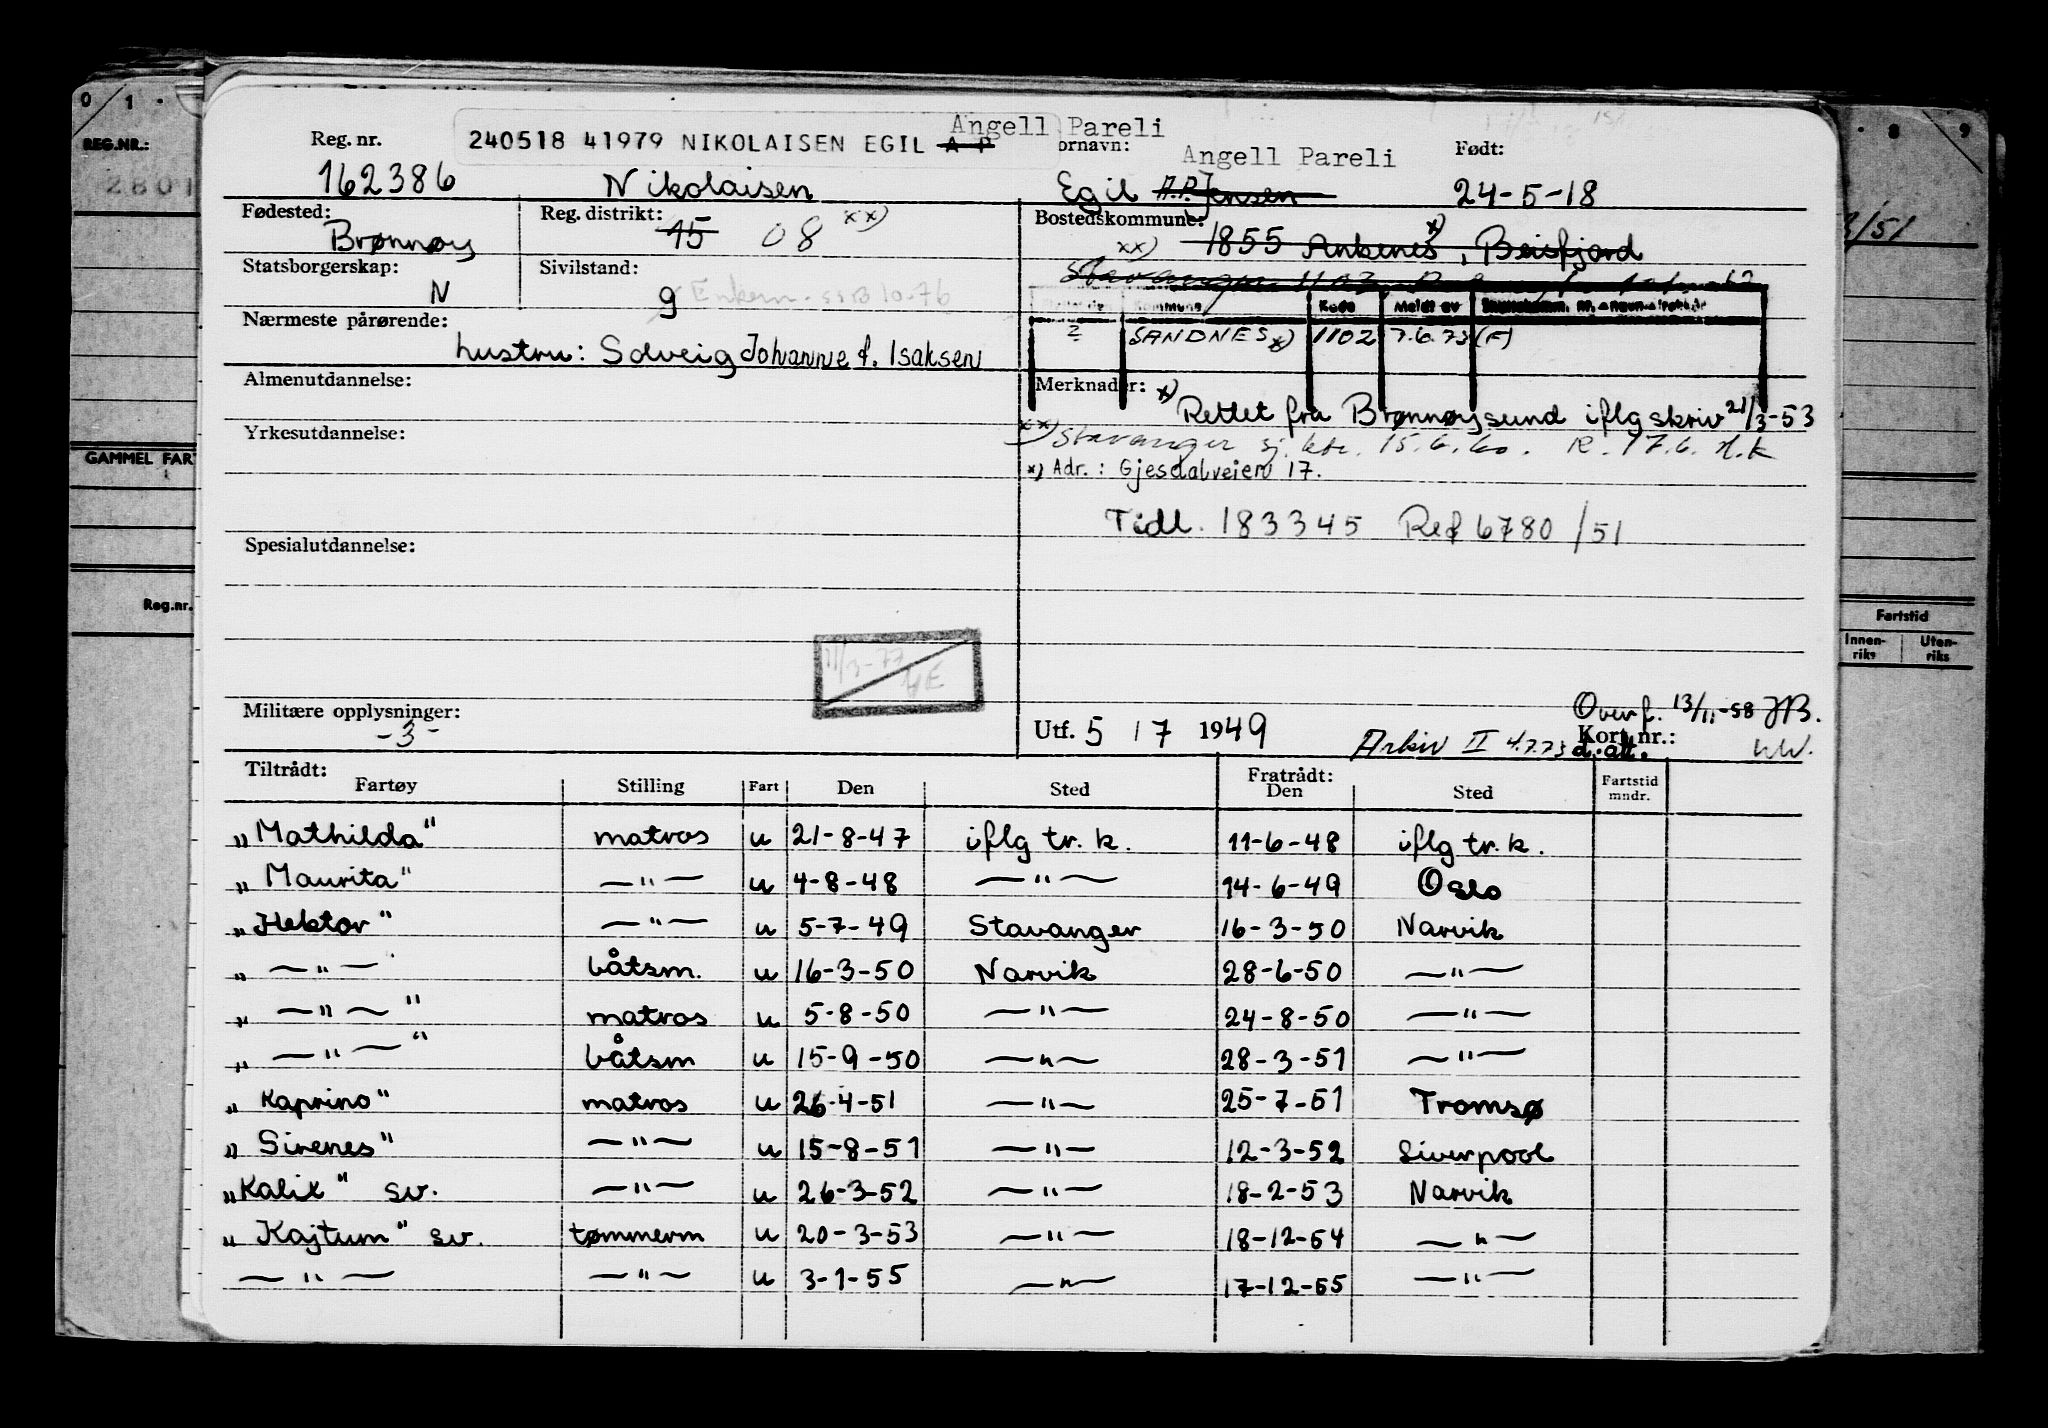 0 1 · · 8 9
REG.NR.:
2801
Angell Pareli
Reg. nr. 240518 41979 NIKOLAISEN EGIL A P ornavn: Angell Pareli Født:
162386 Nikolaisen Egil A.P. Jensen 24-5-18
Fødested: Reg. distrikt: Bostedskommune:
Brønnøy 15 08 xx) 1855 Ankenes x), Beisfjord
3/51
Statsborgerskap: Sivilstand: xx) Stavanger 1103
N g Enkem. SSB 10-76
Kommune Kode Meldt av
Nærmeste pårørende: 2 SANDNES x) 1102 7.6.73 (F)
hustru: Solveig Johanne f. Isaksen
Almenutdannelse: Merknader: x) Rettet fra Brønnøysund iflg skriv 21/3-53
Yrkesutdannelse: xx) Stavanger sj. ktr. 15.6.60. R. 17.6. H.K
GAMMEL FAR
x) Adr.: Gjesdalveien 17.
Tidl. 183345 Ref 6780/51
Spesialutdannelse:
Reg.nr. Fartstid
Innen-riks Uten-riks
11/3-77
HE
Militære opplysninger: Overf. 13/11-58 JB.
-3- Utf. 5 / 7 1949 Kort nr.:
Arkiv II 4.7.73 d.att.
Tiltrådt: Fratrådt:
Fartøy Stilling Fart Den Sted Den Sted Fartstid mndr.
„Mathilda" matros u 21-8-47 iflg tr. k. 11-6-48 iflg tr. k.
„Maurita" —"— u 4-8-48 —"— 14-6-49 Oslo
„Hektor" —"— u 5-7-49 Stavanger 16-3-50 Narvik
„ —"— båtsm. u 16-3-50 Narvik 28-6-50 —"—
„ —"— " matros u 5-8-50 —"— 24-8-50 —"—
„ —"— " båtsm u 15-9-50 —"— 28-3-51 —"—
„Kaprino" matros u 26-4-51 —"— 25-7-51 Tromsø
„Sirenes" —"— u 15-8-51 —"— 12-3-52 Liverpool
„Kalix" sv. —"— u 26-3-52 —"— 18-2-53 Narvik
„Kajtum" sv. tømmerm u 20-3-53 —"— 18-12-54 —"—
—"— —"— u 3-1-55 —"— 17-12-55 —"—